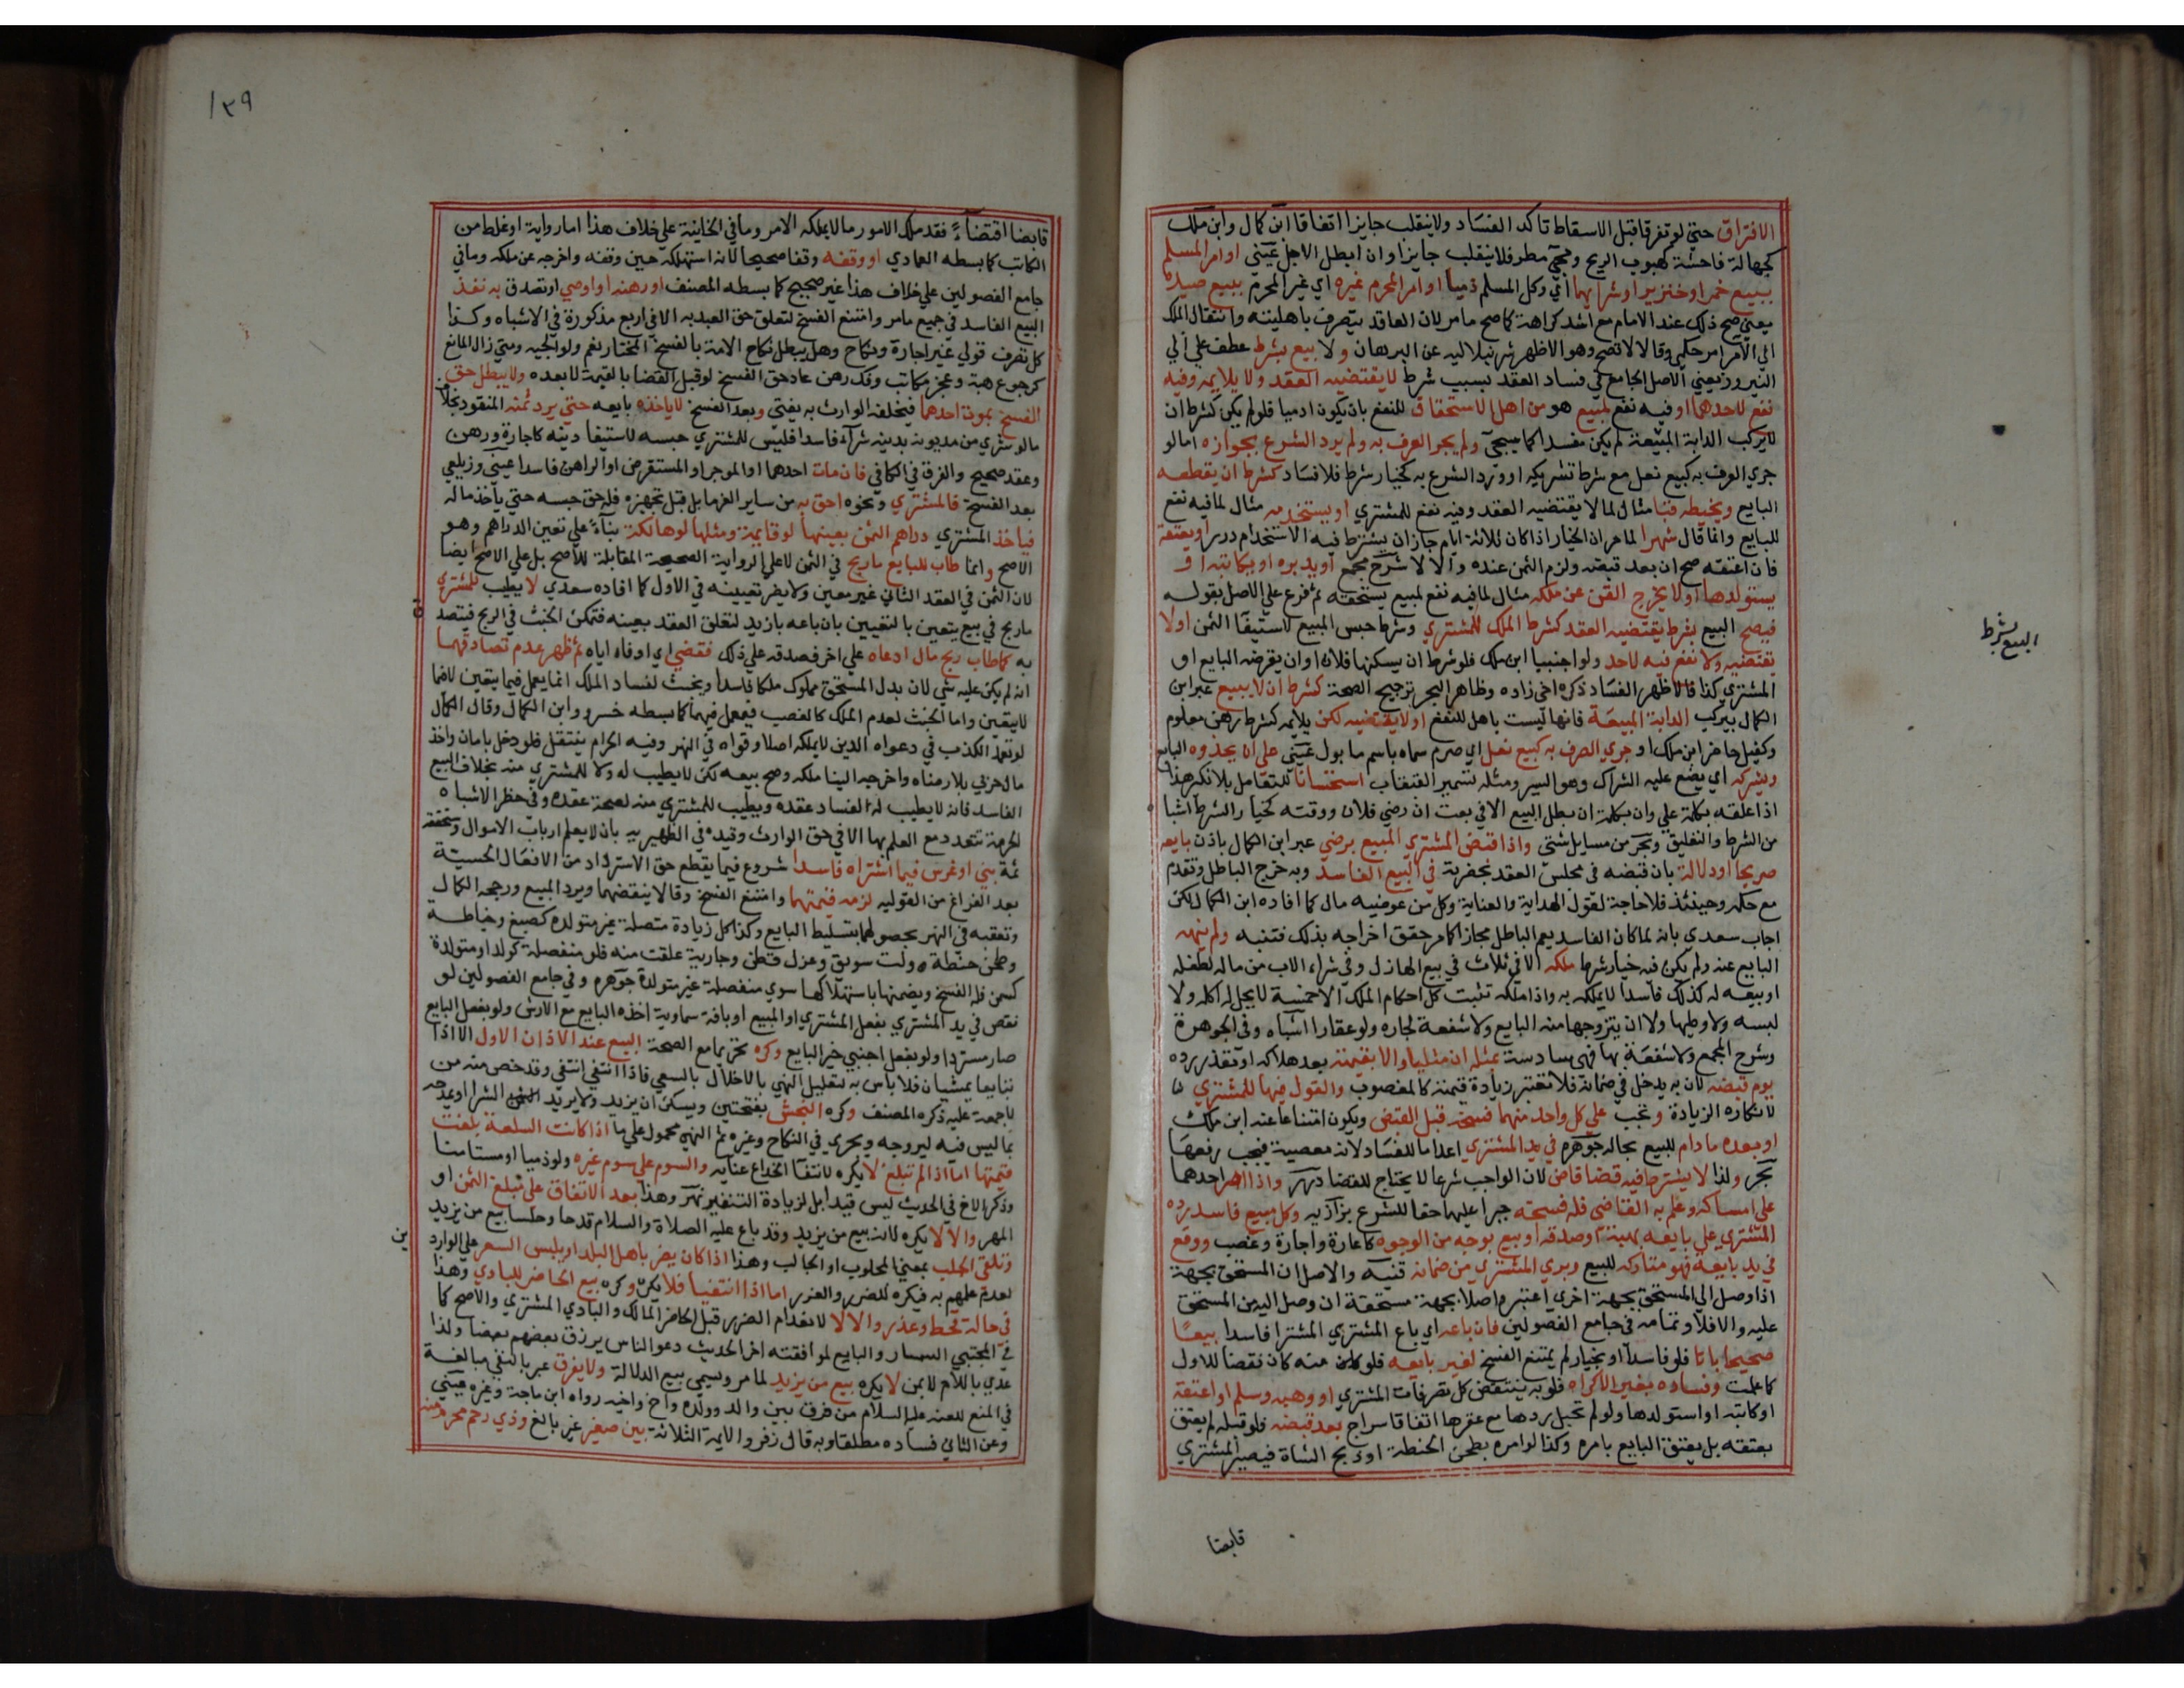 الافتراق حتي لو تفرقا قبل الاسقاط تاكد الفساد ولا ينقلب جايزا اتفاقا ابن كمال وابن ملك
كجهالة فاحشة كهبوب الريح ومجي مطر فلا ينقلب جايزا وان ابطل الاجل عيني او امر المسلم
ببيع خمر او خنزير او شرايهما اي وكل المسلم ذميا او امر المحرم غيره اي غير المحرم ببيع صيده
يعني صح ذلك عند الامام مع اشد كراهة كما صح مامر لان العاقد يتصرف باهليته وانتقال الملك
الي الامر امر حكمي وقالا لا تصح وهو الاظهر شرنبلاليه عن البرهان ولا بيع بشرط عطف علي الي
النيروز يعني الاصل الجامع في فساد العقد بسبب شرط لا يقتضيه العقد ولا يلايمه وفيه
نفع لاحدهما او فيه نفع لمبيع هو من اهل الاستحقاق للنفع بان يكون ادميا فلو لم يكن كشرط ان
لا يركب الدابة المبيعة لم يكن مفسدا كما سيجي ولم يجر العرف به ولم يرد الشرع بجوازه اما لو
جري العرف به كبيع نعل مع شرط تشريكه او ورد الشرع به كخيار شرط فلا فساد كشرط ان يقطعه
البايع ويخيطه قبا مثال لما لا يقتضيه العقد وفيه نفع للمشتري او يستخدمه مثال لما فيه نفع
للبايع وانما قال شهرا لما مر ان الخيار اذا كان ثلاثة ايام جاز ان يشترط فيه الاستخدام درر او يعتقه
فان اعتقه صح ان بعد قبضه ولزم الثمن عنده والا لا شرح مجمع او يدبره او يكاتبه او
يستولدها او لا يخرج القن عن ملكه مثال لما فيه نفع لمبيع يستحقه ثم فرع علي الاصل بقوله
فيصح البيع بشرط يقتضيه العقد كشرط الملك للمشتري وشرط حبس المبيع لاستيفا الثمن او لا
يقتضيه ولا نفع فيه لاحد ولو اجنبيا ابن ملك فلو شرط ان يسكنها فلان او ان يقرضه البايع او
المشتري كذا فالاظهر الفساد ذكره اخي زاده وظاهر البحر ترجيح الصحة كشرط ان لا يبيع عبر ابن
الكمال بيركب الدابة المبيعة فانها ليست باهل للنفع او لا يقتضيه لكن يلايمه كشرط رهن معلوم
وكفيل حاضر ابن ملك او جري العرف به كبيع نعل اي صرم سماه باسم ما يول عيني علي ان يحذوه البايع
ويشركه اي يضع عليه الشراك وهو السير ومثله تسمير القبقاب استحسانا للتعامل بلا نكير هذا
اذا علقه بكلمة علي وان بكلمة ان بطل البيع الا في بعت ان رضي فلان ووقته كخيار الشرط اشباه
من الشرط والتعليق وبحر من مسايل شتي واذا قبض المشتري المبيع برضي عبر ابن الكمال باذن بايعه
صريحا او دلالة بان قبضه في مجلس العقد بحضرته في البيع الفاسد وبه خرج الباطل وتقدم
مع حكمه وحينئذ فلا حاجة لقول الهداية والعناية وكل من عوضيه مال كما افاده ابن الكمال لكن
اجاب سعدي بانه لما كان الفاسد يعم الباطل مجازا كما مر حقق اخراجه بذلك فتنبه ولم ينهه
البايع عنه ولم يكن فيه خيار شرط ملكه الا في ثلاث في بيع الهازل وفي شراء الاب من ماله لطفله
او بيعه له كذلك فاسدا لا يملكه به واذا ملكه تثبت كل احكام الملك الا خمسة لا يحل له اكله ولا
لبسه ولا وطيها ولا ان يتزوجها منه البايع ولا شفعة لجاره ولو عقارا اشباه وفي الجوهرة
وشرح المجمع ولا شفعة بها فهي سادسة بمثله ان مثليا والا بقيمته بعد هلاكه او تعذر رده
يوم قبضه لان به يدخل في ضمانه فلا تعتبر زيادة قيمته كالمغصوب والقول فيها للمشتري
لانكاره الزيادة ويجب علي كل واحد منهما فسخه قبل القبض ويكون امتناعا عنه ابن ملك
او بعده ما دام المبيع بحاله جوهره في يد المشتري اعداما للفساد لانه معصية فيجب رفعها
بحر ولذا لا يشترط فيه قضا قاض لان الواجب شرعا لا يحتاج للقضا درر واذا اصر احدهما
علي امساكه وعلم به القاضي فله فسخه جبرا عليهما حقا للشرع بزازيه وكل مبيع فاسد رده
المشتري علي بايعه بهبة او صدقة او بيع بوجه من الوجوه كاعارة واجارة وغصب ووقع
في يد بايعه فهو متاركه للبيع وبري المشتري من ضمانه قنيه والاصل ان المستحق بجهة
اذا وصل الي المستحق بجهة اخري اعتبر واصلا بجهة مستحقة ان وصل اليه من المستحق
عليه والا فلا وتمامه في جامع الفصولين فان باعه اي باع المشتري المشترا فاسدا بيعا
صحيحا باتا فلو فاسدا او بخيار لم يمتنع الفسخ لغير بايعه فلو منه كان نقضا للاول
كما علمت وفساده بغير الاكراه فلو به ينتقض كل تصرفات المشتري او وهبه وسلم او اعتقه
او كاتبه او استولدها ولو لم تحبل ردها مع عقرها اتفاقا سراج بعد قبضه فلو قبله لم يعتق
بعتقه بل يعتق البايع بامره وكذا لو امره بطحن الحنطة او ذبح الشاة فيصير المشتري
البيع بشرط
قابضا
١٣٩
قابضا اقتضاءً فقد ملك المامور ما لا يملكه الامر وما في الخانية علي خلاف هذا اما رواية او غلط من
الكاتب كما بسطه العمادي او وقفه وقفا صحيحا لانه استهلكه حين وقفه واخرجه عن ملكه وما في
جامع الفصولين علي خلاف هذا غير صحيح كما بسطه المصنف او رهنه او اوصي او تصدق به نفذ
البيع الفاسد في جميع مامر وامتنع الفسخ لتعلق حق العبد به الا في اربع مذكورة في الاشباه وكذا
كل تصرف قولي غير اجارة ونكاح وهل يبطل نكاح الامة بالفسخ المختار نعم ولوالجيه ومتي زال المانع
كرجوع هبة وعجز مكاتب وفك رهن عاد حق الفسخ لو قبل القضا بالقيمة لا بعده ولا يبطل حق
الفسخ بموت احدهما فيخلفه الوارث به يفتي وبعد الفسخ لا ياخذه بايعه حتي يرد ثمنه المنقود بخلاف
ما لو شري من مديونه بدينه شراء فاسدا فليس للمشتري حبسه لاستيفا دينه كاجارة ورهن
وعقد صحيح والفرق في الكافي فان مات احدهما او الموجر او المستقرض او الراهن فاسدا عيني وزيلعي
بعد الفسخ فالمشتري ونحوه احق به من ساير الغرما بل قبل تجهيزه فله حق حبسه حتي ياخذ ماله
فياخذ المشتري دراهم الثمن بعينها لو قايمة ومثلها لو هالكة بناءً علي تعين الدراهم وهو
الاصح وانما طاب للبايع ما ربح في الثمن لا علي الرواية الصحيحة المقابلة للاصح بل علي الاصح ايضا
لان الثمن في العقد الثاني غير معين ولا يضر تعيينه في الاول كما افاده سعدي لا يطيب للمشتري
ما ربح في بيع يتعين بالتعيين بان باعه بازيد لتعلق العقد بعينه فتمكن الخبث في الربح فيتصدق
به كما طاب ربح مال ادعاه علي اخر فصدقه علي ذلك فقضي اي اوفاه اياه ثم ظهر عدم تصادقهما
انه لم يكن عليه شي لان بدل المستحق مملوك ملكا فاسدا وبخبث لفساد الملك انما يعمل فيما يتعين لا فيما
لا يتعين واما الخبث لعدم الملك كالغصب فيعمل فيهما كما بسطه خسرو وابن الكمال وقال الكمال
لو تعمد الكذب في دعواه الدين لا يملكه اصلا وقواه في النهر وفيه الحرام ينتقل فلو دخل بامان واخذ
مال حربي بلا رضاه واخرجه الينا ملكه وصح بيعه لكن لا يطيب له ولا للمشتري منه بخلاف البيع
الفاسد فانه لا يطيب له لفساد عقده ويطيب للمشتري منه لصحة عقده وفي حظر الاشباه
الحرمة تتعدد مع العلم بها الا في حق الوارث وقيده في الظهيريه بان لا يعلم ارباب الاموال وسنحققه
ثمة بني او غرس فيما اشتراه فاسدا شروع فيما يقطع حق الاسترداد من الافعال الحسية
بعد الفراغ من القوليه لزمه قيمتهما وامتنع الفسخ وقالا ينقضهما ويرد المبيع ورجحه الكمال
وتعقبه في النهر بحصولهما بتسليط البايع وكذا كل زيادة متصلة غير متولدة كصبغ وخياطة
وطحن حنطة ولت سويق وغزل قطن وجارية علقت منه فلو منفصلة كولد او متولدة
كسمن فله الفسخ ويضمنها باستهلاكها سوي منفصلة غير متولدة جوهره وفي جامع الفصولين لو
نقص في يد المشتري بفعل المشتري او المبيع او بافة سماوية اخذه البايع مع الارش ولو بفعل البايع
صار مستردا ولو بفعل اجنبي خير البايع وكره تحريما مع الصحة البيع عند الاذان الاول الا اذا
تبايعا يمشيان فلا باس به لتعليل النهي بالاخلال بالسعي فاذا انتفي انتفي وقد خص منه من
لا جمعة عليه ذكره المصنف وكره النجش بفتحتين ويسكن ان يزيد ولا يريد الشرا او يمدحه
بما ليس فيه ليروجه ويجري في النكاح وغيره ثم النهي محمول علي ما اذا كانت السلعة بلغت
قيمتها اما اذا لم تبلغ لا يكره لانتفا الخداع عنايه والسوم علي سوم غيره ولو ذميا او مستامنا
وذكر الاخ في الحديث ليس قيدا بل لزيادة التنفير نهر وهذا بعد الاتفاق علي مبلغ الثمن او
المهر والا لا يكره لانه بيع من يزيد وقد باع عليه الصلاة والسلام قدحا وحلسا بيع من يزيد
وتلقي الجلب بمعني المجلوب او الجالب وهذا اذا كان يضر باهل البلد او يلبس السعر علي الواردين
لعدم علمهم به فيكره للضرر والغرر اما اذا انتفيا فلا يكره وكره بيع الحاضر للبادي وهذا
في حالة قحط وعذر والا لا لانعدام الضرر قيل الحاضر المالك والبادي المشتري والاصح كما
في المجتبي السمسار والبايع لموافقته اخر الحديث دعوا الناس يرزق بعضهم بعضا ولذا
عدي باللام لا بمن لا يكره بيع من يزيد لما مر ويسمي بيع الدلالة ولا يفرق عبر بالنفي مبالغة
في المنع للعنه عليه السلام من فرق بين والد وولده واخ واخيه رواه ابن ماجة وغيره عيني
وعن الثاني فساده مطلقا وبه قال زفر والايمة الثلاثة بين صغير غير بالغ وذي رحم محرم منه